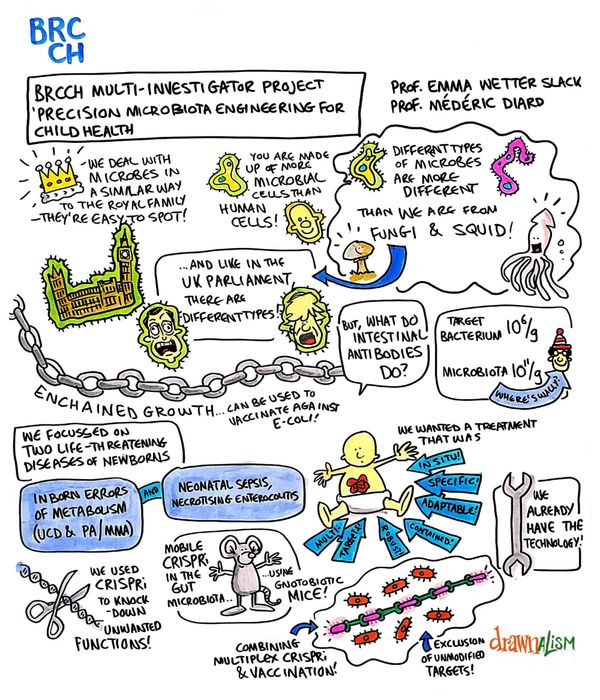 BRC
CH
BRCCH MULTI-INVESTIGATOR PROJECT
'PRECISION MICROBIOTA ENGINEERING FOR
CHILD HEALTH
PROF. EMMA WETTER SLACK
PROF. MÉDÉRIC DIARD
WE DEAL WITH
MICROBES IN
A SIMILAR WAY
TO THE ROYAL FAMILY
-THEY'RE EASY TO SPOT!
YOU ARE MADE
UP OF MORE
MICROBIAL
CELLS THAN
HUMAN
CELLS!
DIFFERNT TYPES
OF MICROBES
ARE MORE
DIFFERENT
THAN WE ARE FROM
FUNGI & SQUID!
...AND LIKE IN THE
UK PARLIAMENT,
THERE ARE
DIFFERENT TYPES!
BUT, WHAT DO
INTESTINAL
ANTIBODIES
DO?
TARGET
BACTERIUM 10⁶/g
MICROBIOTA 10¹¹/g
WHERE'S WALLY?
ENCHAINED GROWTH... CAN BE USED TO
VACCINATE AGAINST
E-COLI!
WE FOCUSSED ON
TWO LIFE-THREATENING
DISEASES OF NEWBORNS
INBORN ERRORS
OF METABOLISM
(UCD & PA/MMA)
AND
NEONATAL SEPSIS,
NECROTISING ENTEROCOLITIS
WE WANTED A TREATMENT
THAT WAS
IN SITU!
SPECIFIC!
ADAPTABLE!
CONTAINED!
ROBUST!
MULTI-
TARGETS!
WE
ALREADY
HAVE THE
TECHNOLOGY!
WE USED
CRISPRi
TO KNOCK
-DOWN
UNWANTED
FUNCTIONS!
MOBILE
CRISPRi
IN THE
GUT
MICROBIOTA...
...USING
GNOTOBIOTIC
MICE!
COMBINING
MULTIPLEX CRISPRi
& VACCINATION!
EXCLUSION
OF UNMODIFIED
TARGETS!
drawnALISM